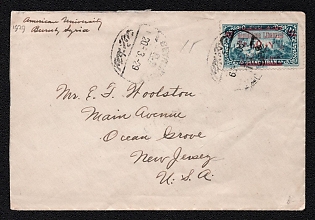 American University
1929 Beirut, Syria
20-3-29
Mr. E. F. Woolston
Main Avenue
Ocean Grove
New Jersey
U. S. A.